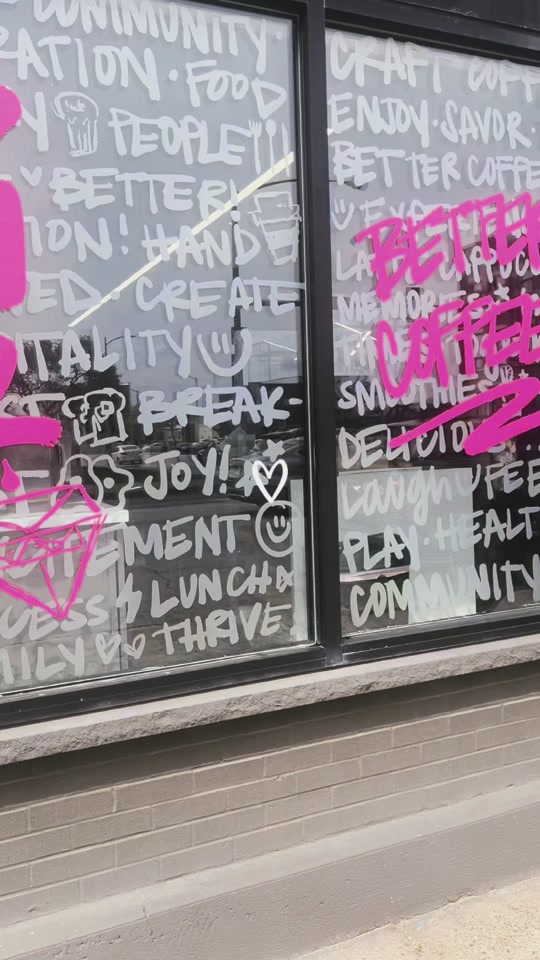 COMMUNITY.
RATION · FOOD
Y PEOPLE
BETTER
ION! HAND
ED. CREATE
ITALITY
ST BREAK-
JOY!
EMENT
CESS LUNCH
MILY THRIVE
CRAFT COFF
ENJOY · SAVOR ·
BETTER COFFE
LA CAPPUC
MEMORIES
SMOOTHIES
DELICIO
Laugh FEE
PLAY · HEALT
COMMUNITY
BETTER
COFFEE